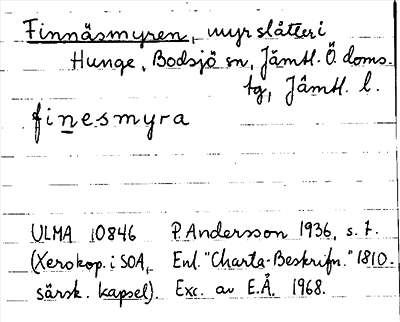 Finnäsmyren, myrslåtter i
Hunge, Bodsjö sn, Jämtl. Ö. doms.
tg, Jämtl. l.
finesmyra
ULMA 10846 P. Andersson 1936, s. 7.
(Xerokop. i SOA, Enl. "Charta-Beskrifn." 1810.
särsk. kapsel). Exc. av E.Å. 1968.